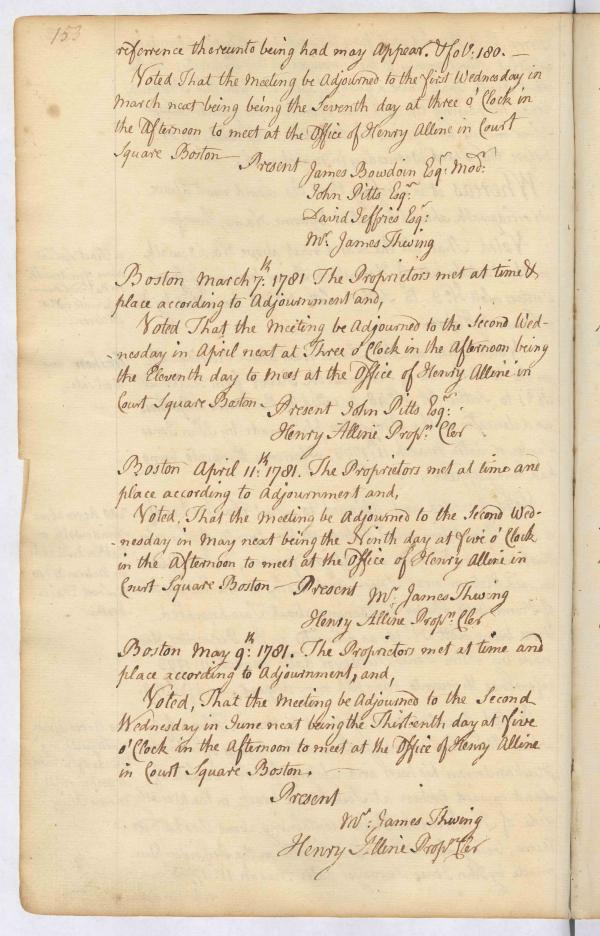 153
referrence thereunto being had may Appear. Vfol: 180. —
Voted That the Meeting be Adjourned to the first Wednesday in
March next being being the Seventh day at three o'Clock in
the Afternoon to meet at the Office of Henry Alline in Court
Square Boston — Present James Bowdoin Esqr. Modr.
John Pitts Esqr.
David Jeffries Esqr:
Mr. James Thwing
Boston March 7th: 1781 The Proprietors met at time &
place according to Adjournment and,
Voted That the Meeting be Adjourned to the Second Wed-
-nesday in April next at Three o'Clock in the Afternoon being
the Eleventh day to meet at the Office of Henry Alline in
Court Square Boston - Present John Pitts Esqr:
Henry Alline Propn. Cler
Boston April 11th: 1781. The Proprietors met at time and
place according to Adjournment and,
Voted, That the Meeting be Adjourned to the Second Wed-
-nesday in May next being the Ninth day at five o'Clock
in the Afternoon to meet at the Office of Henry Alline in
Court Square Boston — Present Mr. James Thwing
Henry Alline Propn. Cler
Boston May 9th: 1781. The Proprietors met at time and
place according to Adjournment, and,
Voted, That the Meeting be Adjourned to the Second
Wednesday in June next being the Thirteenth day at five
o'Clock in the Afternoon to meet at the Office of Henry Alline
in Court Square Boston. —
Present
Mr: James Thwing
Henry Alline Propn. Cler